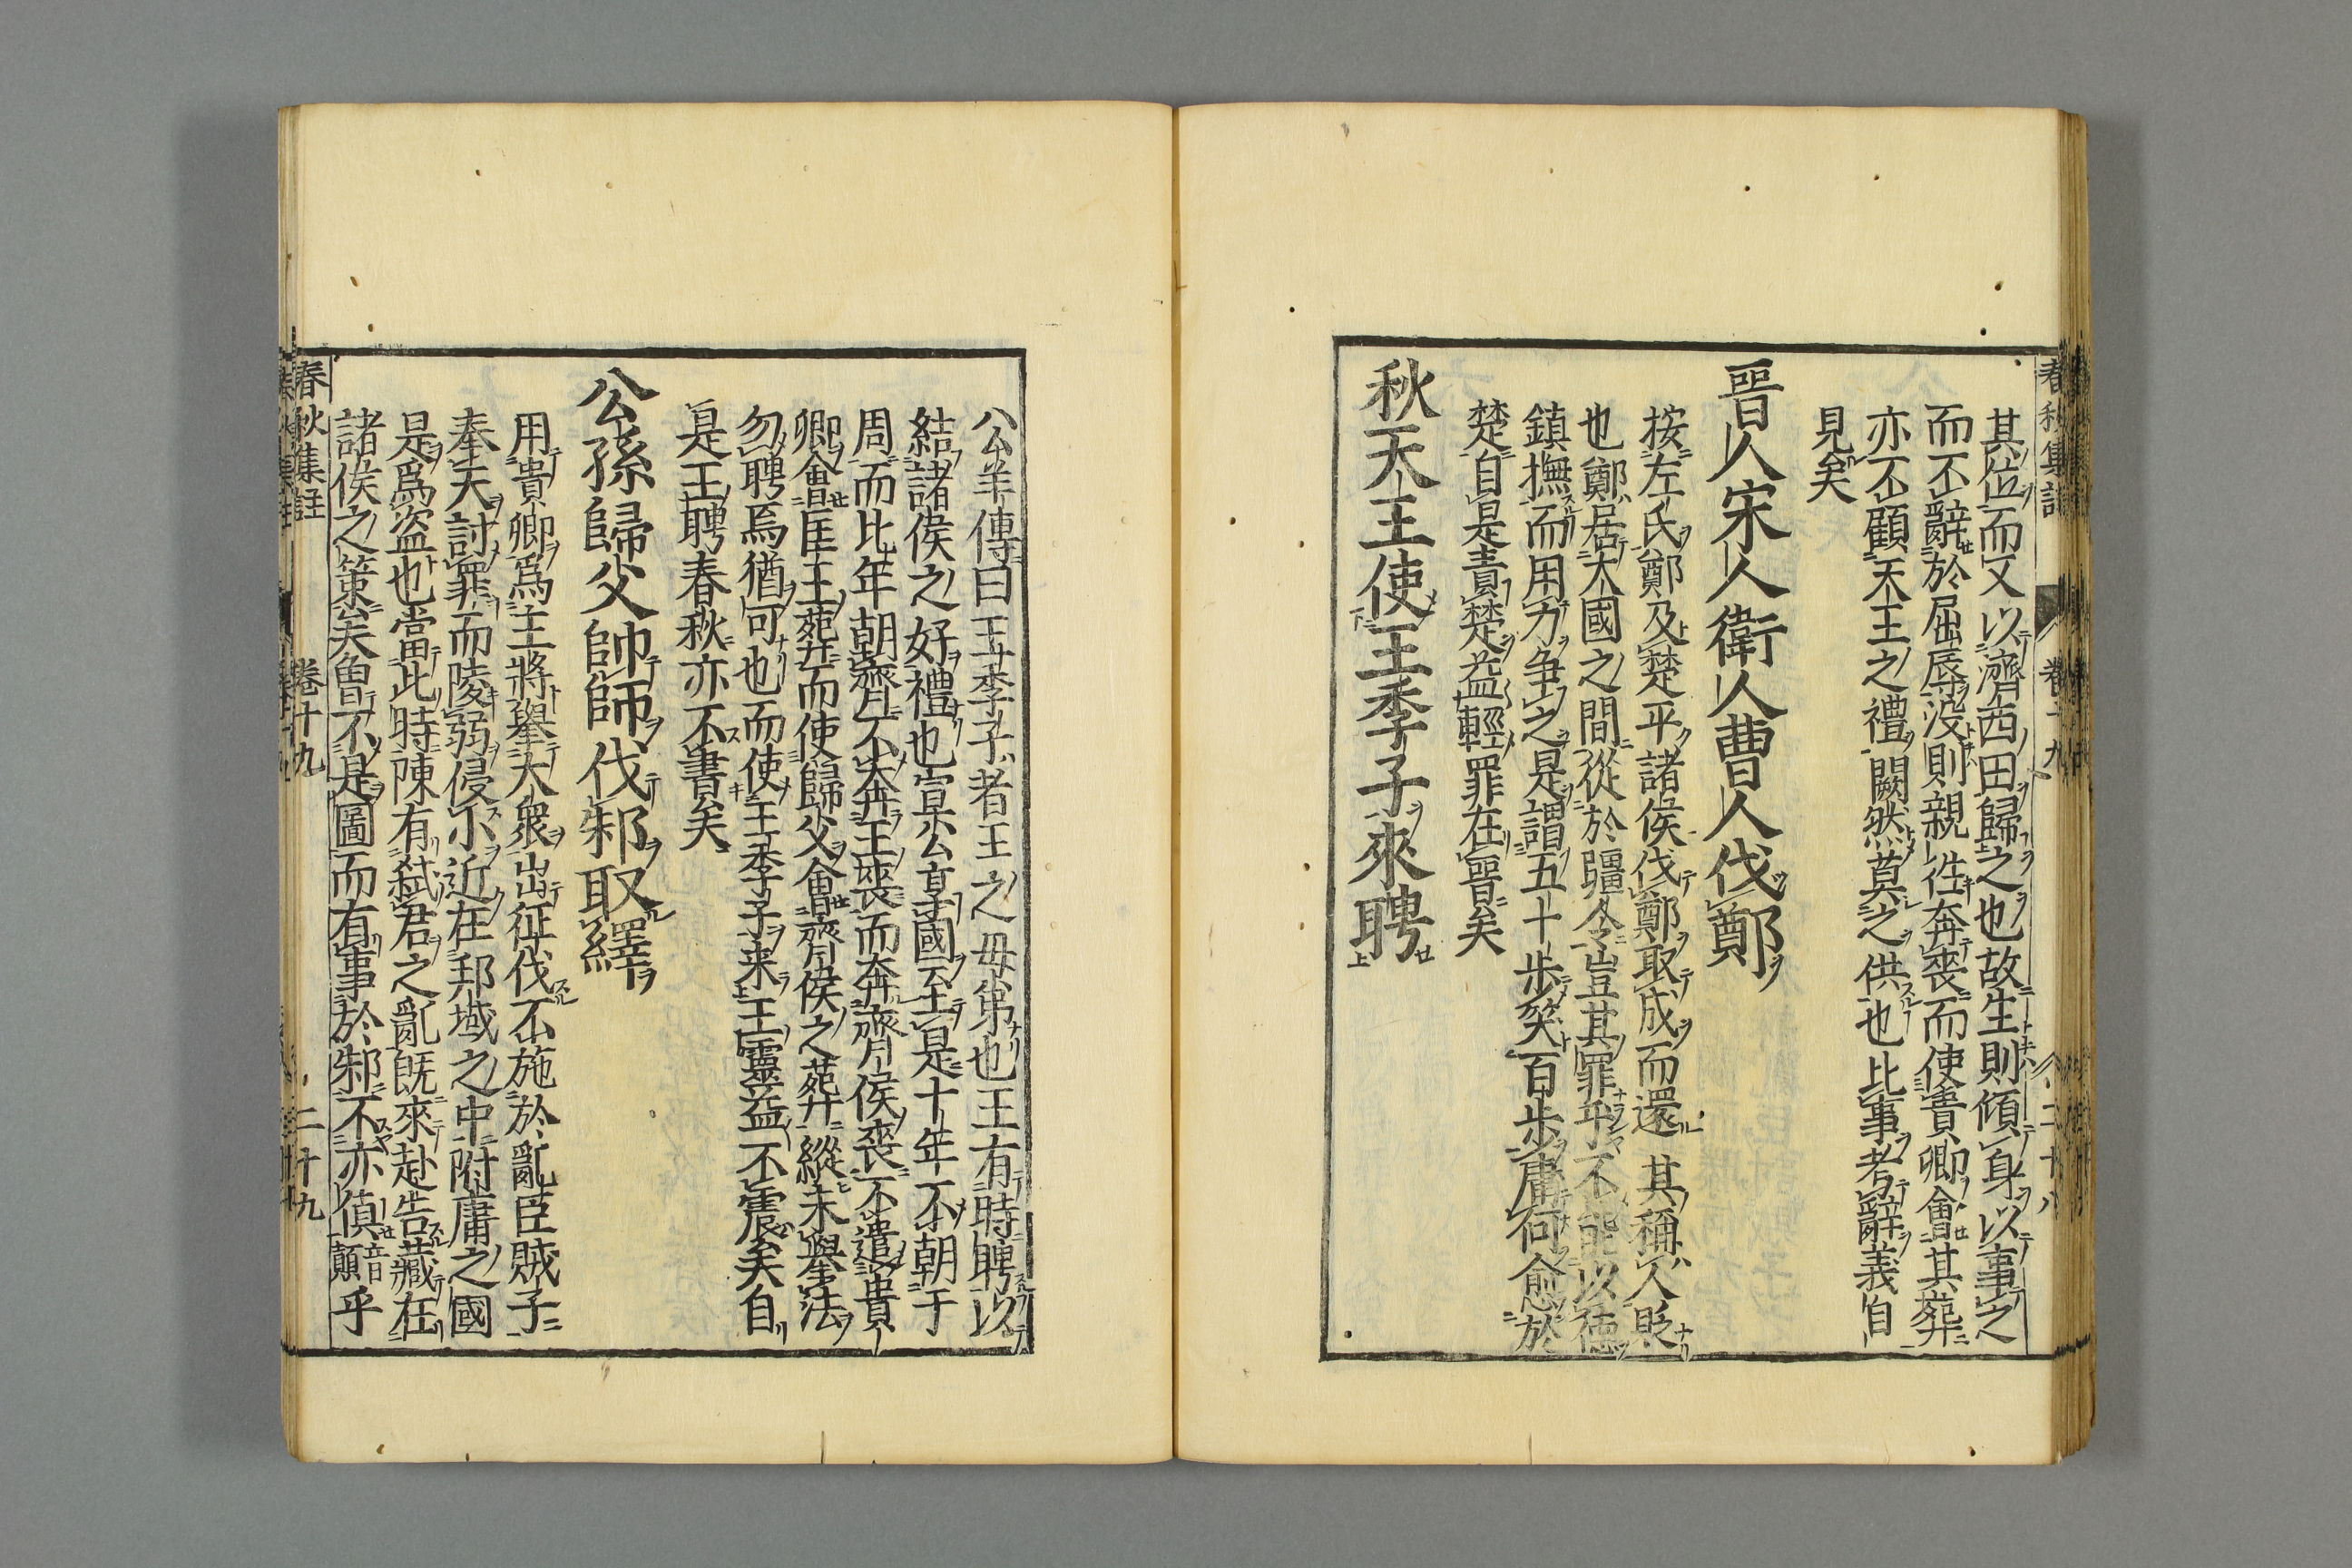 春秋集註 卷十九 二十八
其位而又以濟西田歸之也故生則傾身以事之
而不辭於屈辱沒則親往奔喪而使貴卿會其葬
亦不顧天王之禮闕然莫之供也比事考辭義自
見矣
晉人宋人衛人曹人伐鄭
按左氏鄭及楚平諸侯伐鄭取成而還其稱人貶
也鄭居大國之間從於彊令豈其罪乎不能以德
鎮撫而用力争之是謂五十步笑百步庸何愈於
楚自是責楚益輕罪在晉矣
秋天王使王季子來聘
公羊傳曰王季子者王之毋弟也王有時聘以
結諸侯之好禮也宣公享國至是十年不朝于
周而比年朝齊不奔王喪而奔齊侯喪不遣貴
卿會匡王葬而使歸父會齊侯之葬縱未舉法
勿聘焉猶可也而使王季子来王靈益不震矣自
是王聘春秋亦不書矣
公孫歸父帥師伐邾取繹
用貴卿爲主將舉大衆出征伐不施於亂臣賊子
奉天討罪而陵弱侵小近在邦域之中附庸之國
是爲盗也當此時陳有弑君之亂既來赴告藏在
諸侯之策矣魯不是圖而有事於邾不亦傎音顛乎
春秋集註 卷十九 二十九